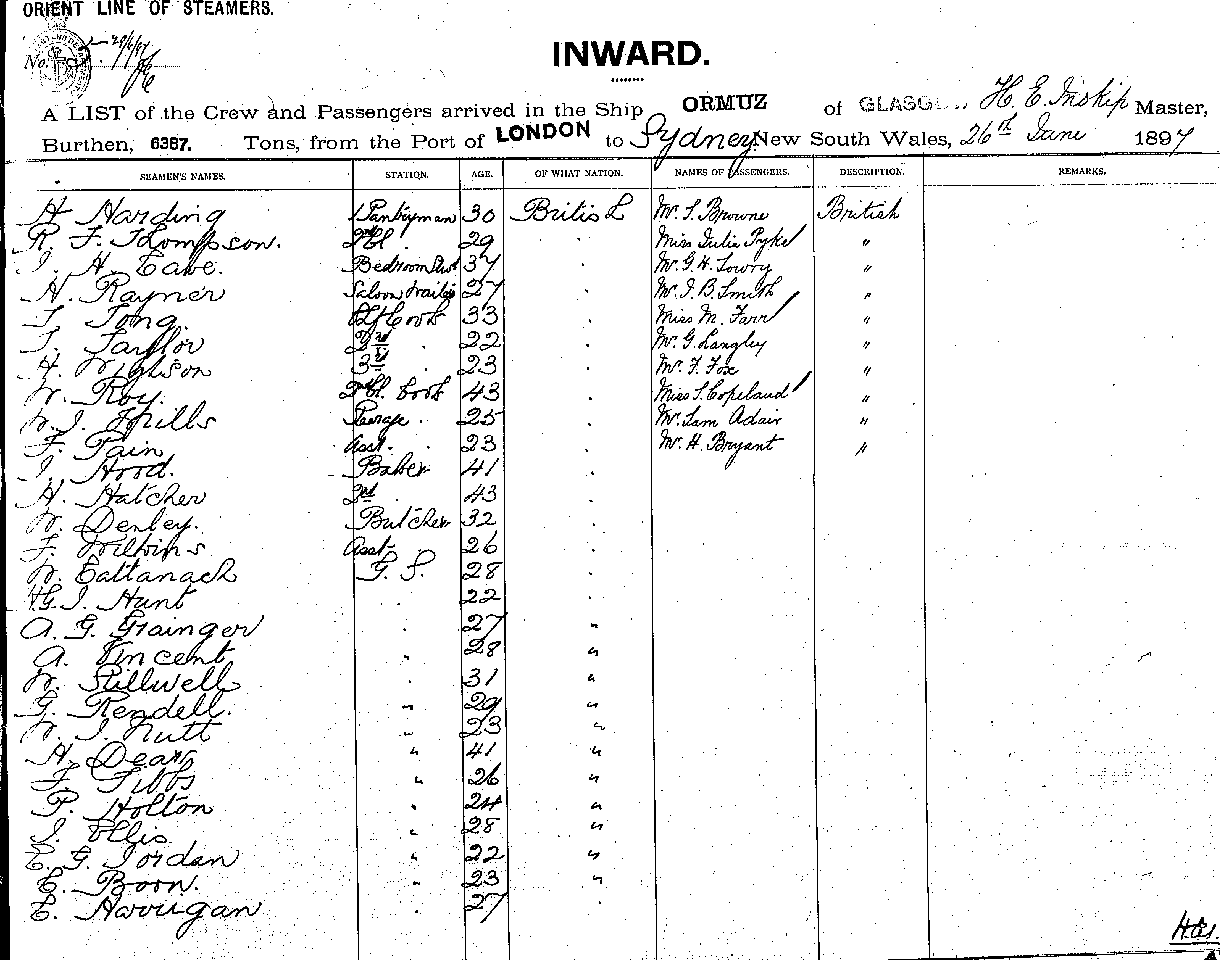 ORIENT LINE OF STEAMERS.
No.
INWARD.
A LIST of the Crew and Passengers arrived in the Ship ORMUZ of GLASGOW H. E. Inskip Master,
Burthen, 6387. Tons, from the Port of LONDON to Sydney New South Wales, 26th Jany 1897
SEAMEN'S NAMES. STATION. AGE. OF WHAT NATION. NAMES OF PASSENGERS. DESCRIPTION. REMARKS.
H Harding Pantryman 30 British Mr. S. Browne British
R. F. Thompson. 2nd Cl. 29 " Miss Julia Pyke "
J. H. Cave. Bedroom Stwd 37 " Mr. G. H. Lowry "
H. Rayner Saloon Waiter 27 " Mr. J. B. Smith "
T. Tong. Cook 33 " Miss M. Farr "
T. Taylor 2nd " 22 " Mr. G. Langley "
H. 3rd " 23 " Mr. F. Fox "
W. Roy. 2nd Cl. Cook 43 " Miss S. Copeland "
W. J. Mills 25 " Mr. Sam Adair "
F. Pain Asst. 23 " Mr. H. Bryant "
J. Hood. Baker 41 "
H. Hatcher 2nd " 43 "
W. Denley. Butcher 32 "
F. Wilkins Asst. 26 "
W. Cattanach G. S. 28 "
H. G. J. Hunt " 22 "
A. G. Grainger " 27 "
A. Vincent " 28 "
W. Stillwell " 31 "
G. Rendell. " 29 "
W. J. Nutt " 23 "
H. Dear " 41 "
F. Tibbs " 26 "
P. Holton " 24 "
J. Ellis " 28 "
E. G. Jordan " 22 "
E. Born. " 23 "
E. Harrigan " 27 "